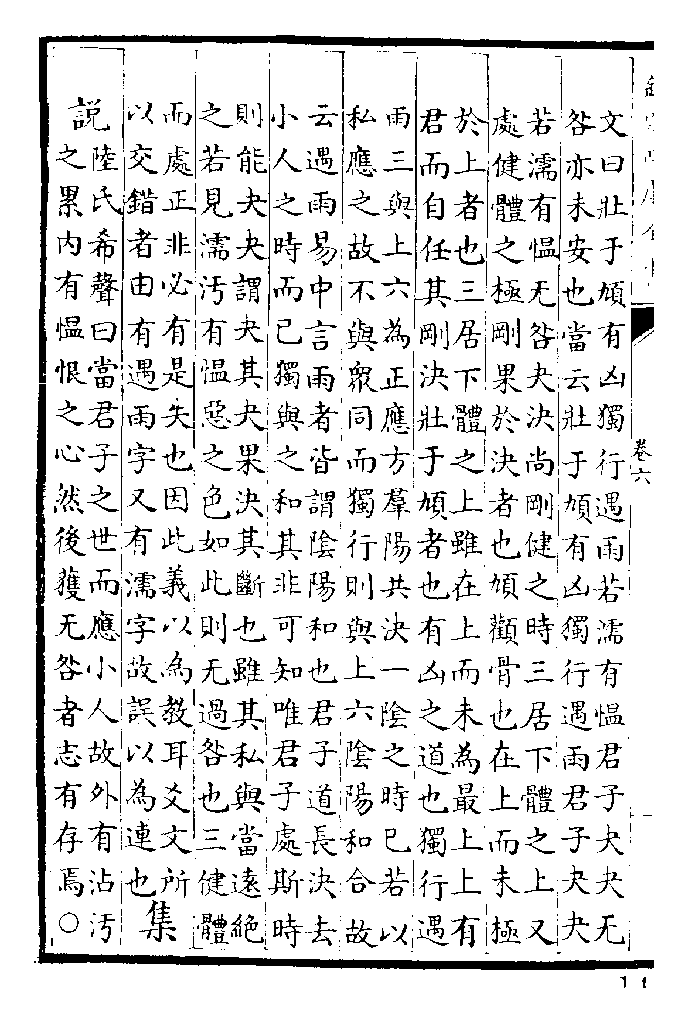 文曰壯于頄有凶獨行遇雨若濡有慍君子夬夬无
咎亦未安也當云壯于頄有凶獨行遇雨君子夬夬
若濡有慍无咎夬決尚剛健之時三居下體之上又
處健體之極剛果於決者也頄顴骨也在上而未極
於上者也三居下體之上雖在上而未為最上上有
君而自任其剛決壯于頄者也有凶之道也獨行遇
雨三與上六為正應方羣陽共決一陰之時已若以
私應之故不與眾同而獨行則與上六陰陽和合故
云遇雨易中言雨者皆謂陰陽和也君子道長決去
小人之時而已獨與之和其非可知唯君子處斯時
則能夬夬謂夬其夬果決其斷也雖其私與當遠絕
之若見濡汚有慍惡之色如此則无過咎也三健體
而處正非必有是失也因此義以為教耳爻文所
以交錯者由有遇雨字又有濡字故誤以為連也
集
說
陸氏希聲曰當君子之世而應小人故外有沾汚
之累內有慍恨之心然後獲无咎者志有存焉○
卷六